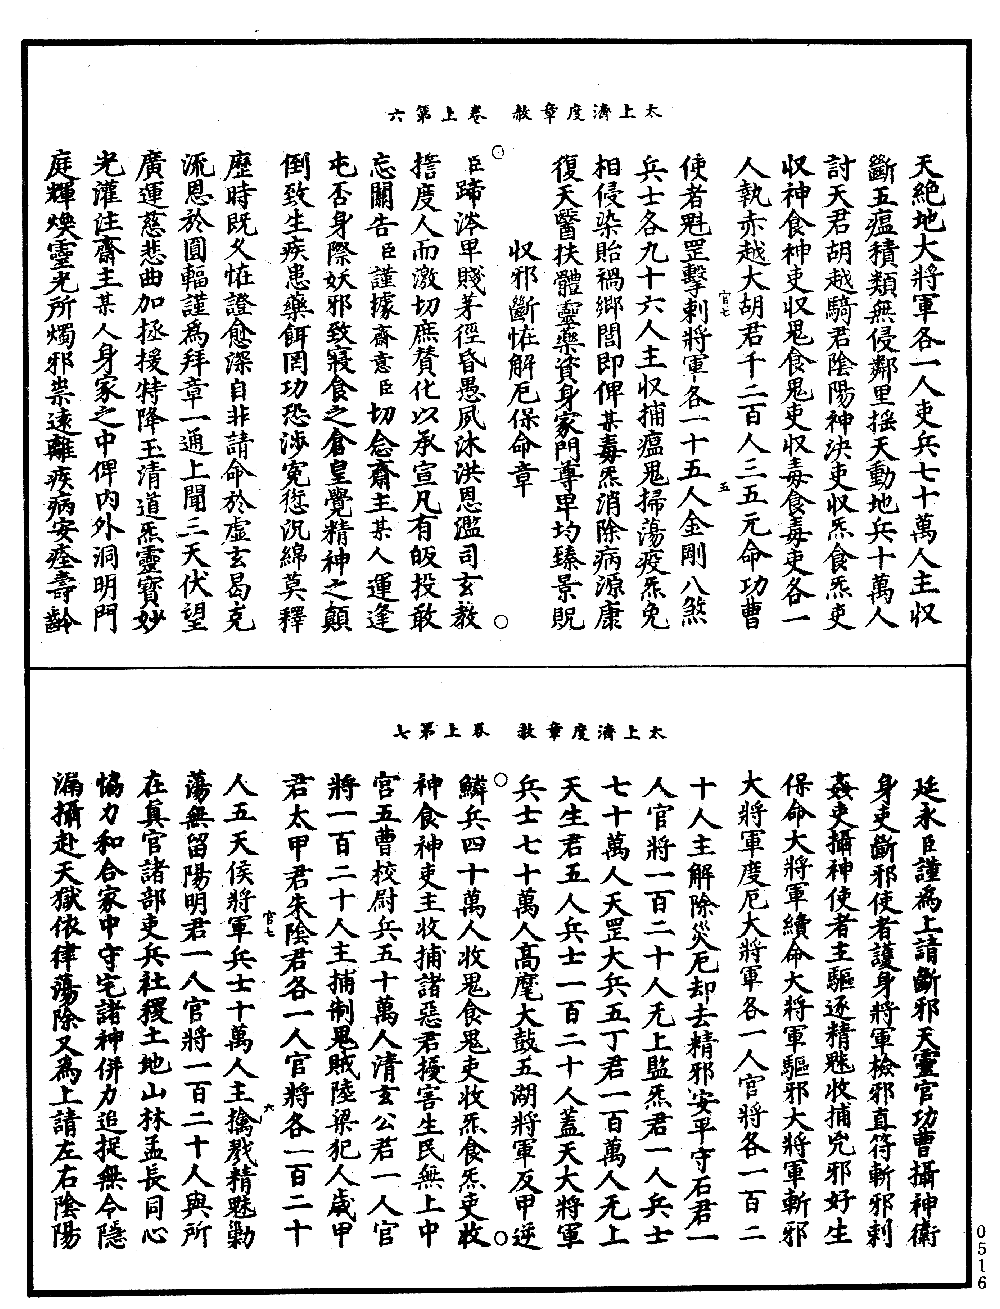 太上濟度章赦　卷上第六
天絕地大將軍各一人吏兵七十萬人主収
斷五瘟積類無侵鄰里揺天動地兵十萬人
討天君胡越騎君陰陽神決吏収炁食炁吏
収神食神吏収鬼食鬼吏収毒食毒吏各一
人執赤越大胡君千二百人三五元命功曹
官七
五
使者魁罡擊剌將軍各一十五人金剛八煞
兵士各九十六人主収捕瘟鬼掃蕩疫炁免
相侵染貽禍鄉閭即俾某毒炁消除病源康
復天醫扶體靈藥資身家門尊卑均臻景貺
収邪斷恠解厄保命章
臣蹄涔卑賤茅徑昏愚夙沐洪恩濫司玄教
擔度人而激切庶賛化以承宣凡有皈投敢
忘關告臣謹據齋意臣切念齋主某人運逢
屯否身際妖邪致寢食之倉皇覺精神之顛
倒致生疾患藥餌罔功恐涉寃愆沉綿莫釋
歷時既乆恠證愈深自非請命於虛玄曷克
流恩於圓輻謹為拜章一通上聞三天伏望
廣運慈悲曲加拯援特降玉清道炁靈寶妙
光灌注齋主某人身家之中俾内外洞明門
庭輝煥靈光所燭邪祟遠離疾病安痊壽齡
太上濟度章赦　卷上第七
延永臣謹為上請斷邪天靈官功曹攝神衛
身吏斷邪使者護身將軍檢邪直符斬邪剌
姦吏攝神使者主驅逐精魅收捕兇邪好生
保命大將軍續命大將軍驅邪大將軍斬邪
大將軍度厄大將軍各一人官將各一百二
十人主解除災厄却去精邪安平守石君一
人官將一百二十人无上監炁君一人兵士
七十萬人天罡大兵五丁君一百萬人无上
天生君五人兵士一百二十人蓋天大將軍
兵士七十萬人髙麾大鼓五湖將軍反甲逆
鱗兵四十萬人收鬼食鬼吏收炁食炁吏收
神食神吏主收捕諸惡君擾害生民無上中
宫五曹校尉兵五十萬人清玄公君一人官
將一百二十人主捕制鬼賊陸梁犯人歲甲
君太甲君朱陰君各一人官將各一百二十
官七
六
人五天侯將軍兵士十萬人主擒戮精魅勦
蕩無留陽明君一人官將一百二十人與所
在真官諸部吏兵社稷土地山林孟長同心
恊力和合家中守宅諸神併力追捉無令隱
漏攝赴天獄依律蕩除又為上請左右陰陽
0516